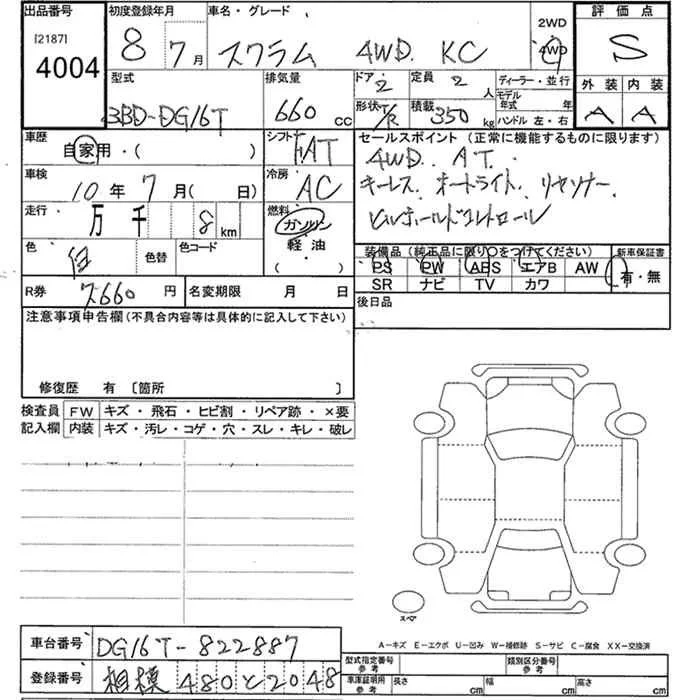 出品番号 初度登録年月 車名・グレード 2WD 評価点
[2187] 8 7月 スクラム 4WD. KC 4WD S
4004
型式 排気量 ドア 2 定員 2 人 ディーラー・並行 外装 内装
3BD-DG16T 660 CC モデル年式 年 A A
形状 T/R 積載 350 kg ハンドル 左・右
車歴 自家用・( ) シフト FAT セールスポイント(正常に機能するものに限ります)
4WD. AT.
車検 10年 7月( 日) 冷房 AC キーレス. オートライト. リヤソナー.
ヒルホールドコントロール
走行 万 千 8 km 燃料 ガソリン
軽油
( )
色 色替 色コード 装備品(純正品に限り○をつけてください) 新車保証書
PS PW ABS エアB AW 有・無
SR ナビ TV カワ
R券 7660 円 名変期限 月 日 後日品
注意事項申告欄(不具合内容等は具体的に記入して下さい)
修復歴 有 〔箇所 〕
検査員 FW キズ・飛石・ヒビ割・リペア跡・×要
記入欄 内装 キズ・汚レ・コゲ・穴・スレ・キレ・破レ
スペア
A-キズ E-エクボ U-凹み W-補修跡 S-サビ C-腐食 XX-交換済
車台番号 DG16T-822887 型式指定番号 参考 類別区分番号 参考
登録番号 相模 480 と 2048 車庫証明用 参考 長さ cm 幅 cm 高さ cm